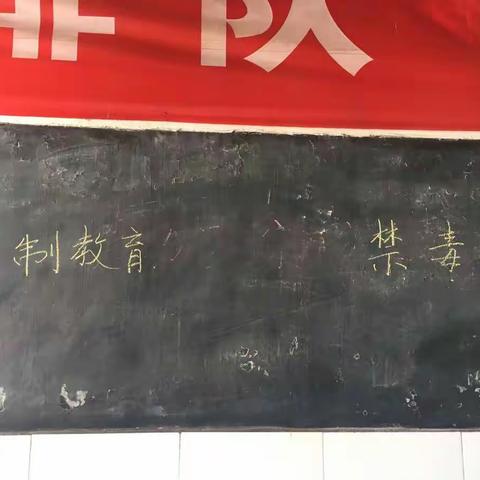 队
制教育 禁毒